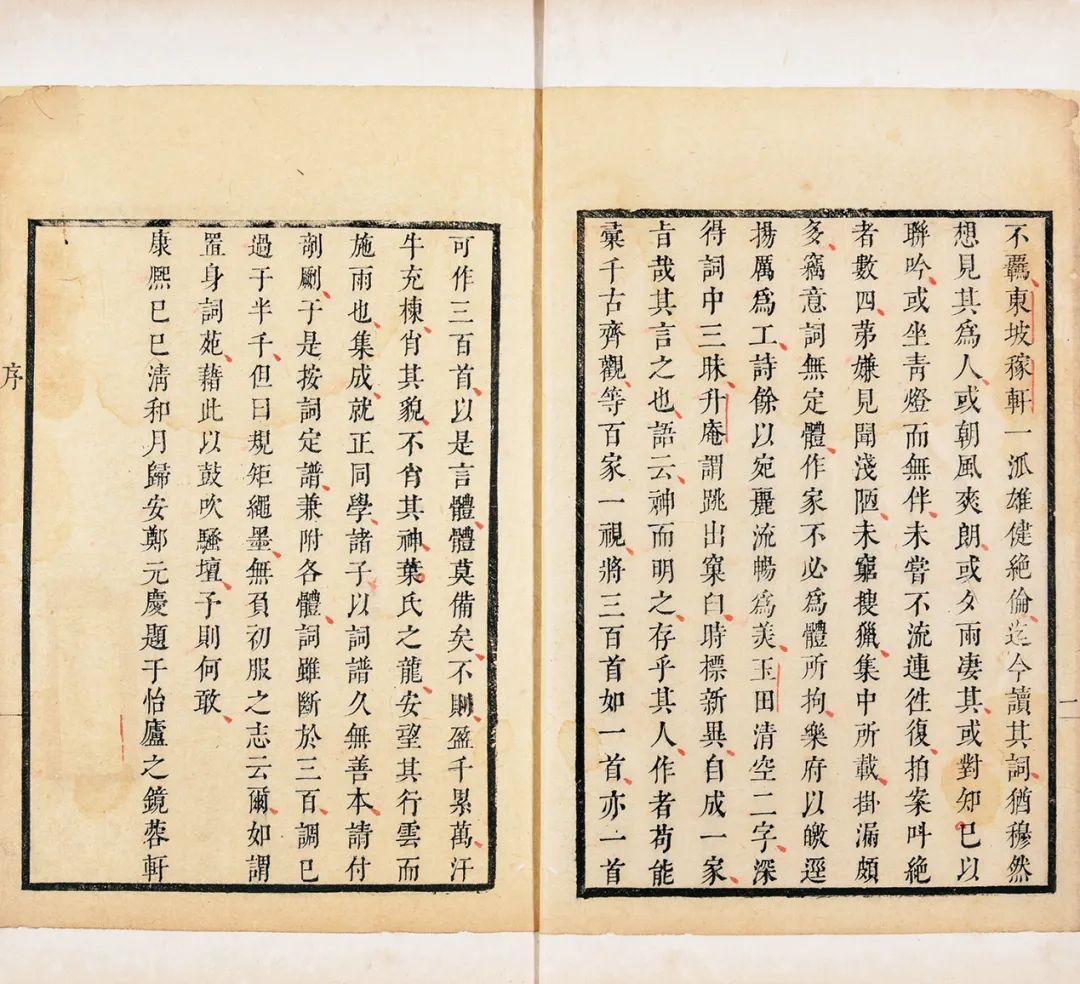 不羈東坡稼軒一派雄健絶倫迄今讀其詞猶穆然
想見其爲人或朝風爽朗或夕雨凄其或對知已以
聯吟或坐青燈而無伴未嘗不流連徃復拍案呌絶
者數四苐嫌見聞淺陋未窮搜獵集中所載掛漏頗
多竊意詞無定體作家不必爲體所拘樂府以皦逕
揚厲爲工詩餘以宛麗流暢爲美玉田清空二字深
得詞中三昧升庵謂跳出窠臼時標新異自成一家
旨哉其言之也語云神而明之存乎其人作者苟能
彙千古齊觀等百家一視將三百首如一首亦一首
可作三百首以是言體體莫備矣不則盈千累萬汗
牛充棟肖其貌不肖其神葉氏之龍安望其行雲而
施雨也集成就正同學諸子以詞譜久無善本請付
剞劂于是按詞定譜兼附各體詞雖斷於三百調已
過于半千但曰規矩繩墨無負初服之志云爾如謂
置身詞苑藉此以鼓吹騷壇予則何敢
康熙已巳清和月歸安鄭元慶題于怡廬之鏡蓉軒
序
二